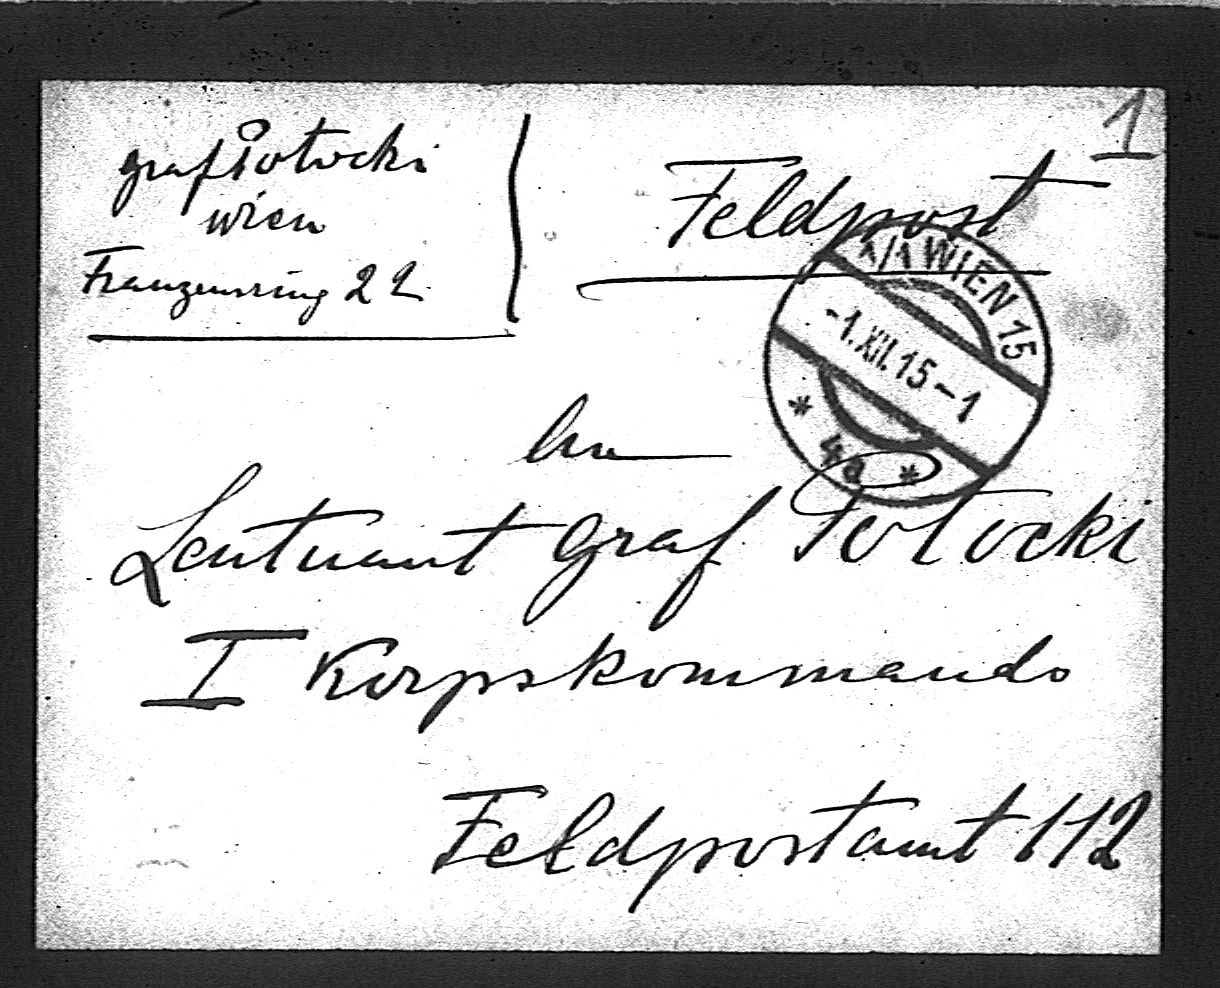 1
graf Potocki
wien
Franzensring 22
Feldpost
1/1 WIEN 15
-1.XII.15-1
* 4a *
An
Leutnant Graf Potocki
I Korpskommando
Feldpostamt 112